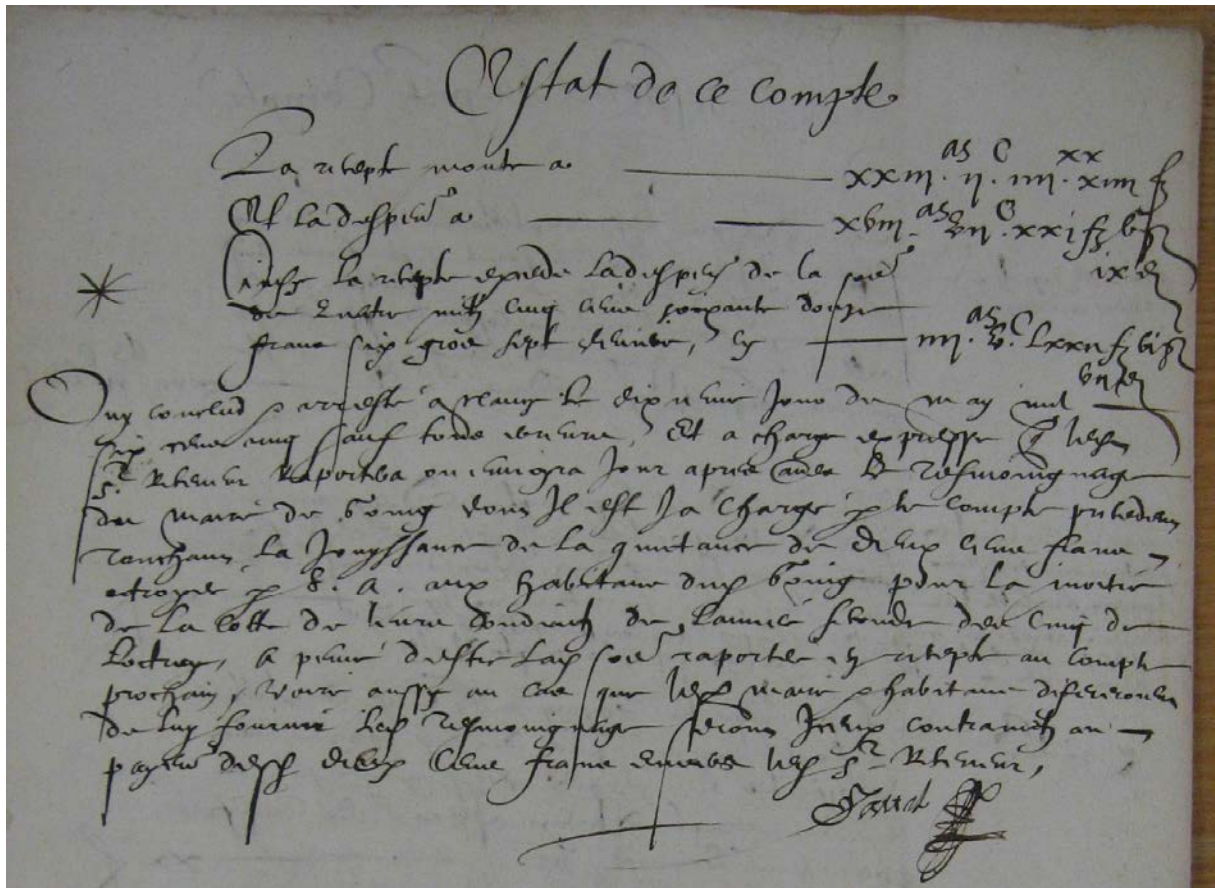 Estat de ce compte
La recepte monte a xxiii. as ii. C iiii. xx xiiii fz
Et la despence a xviii. as vii. C xxi fz
ix d
Ainsy la recepte excede la despence de la some
de quatre mil cinq cens soixante douze
franc six gros sept deniers, cy iiii. as v. C lxxii fz vi g
vii d
Ouy conclud arresté a le dixieme Jour de may mil
six cens cinq sauf toute erreur, Et a charge expresse q
Sr Receveur Raportera Jour apres le tesmoingnage
du maire de Going dont Il est Ja charge p le compte precedent
touchant la Jouyssance de la quictance de deux cens franc
octroyee p S. A. aux habitans dud Going pour la moitié
de la cotte de leurs de l'année seconde des cinq de
Loctroy, a peine d'estre lad some raportee en recepte au compte
prochain, voire aussy au cas que lesd maire habitans
de luy fournir led tesmoingnage seront Iceux contrainctz au
payement desd deux cens franc envers led Sr Receveur,